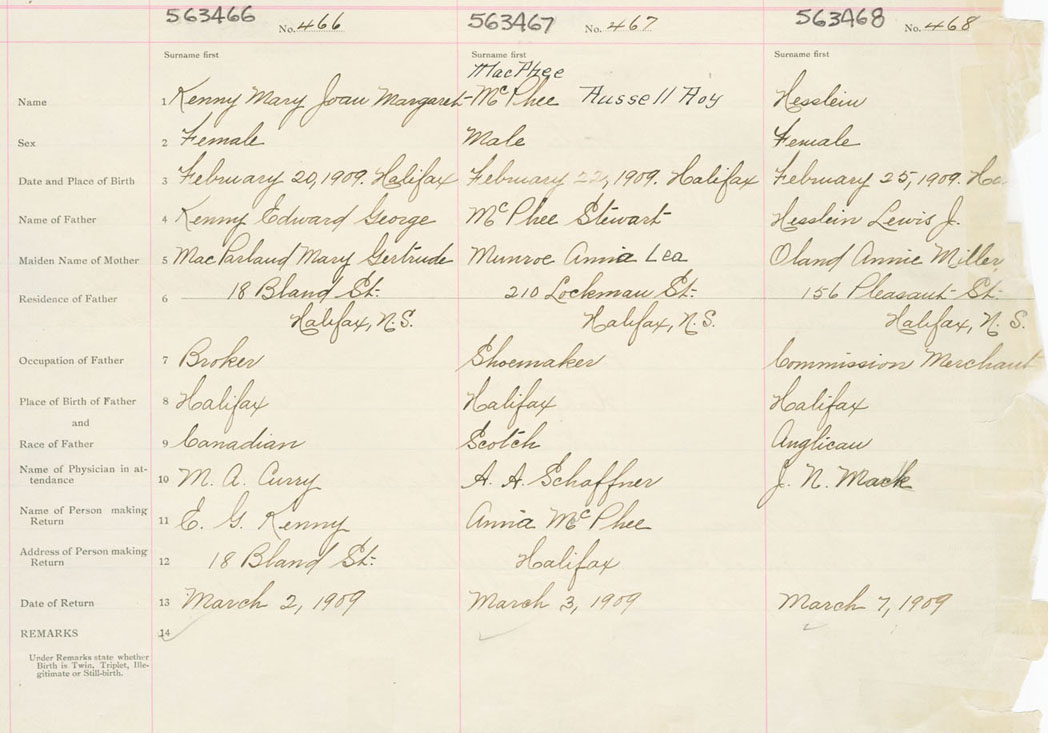 563466 No. 466 563467 No. 467 563468 No. 468
Surname first Surname first Surname first
MacPhee
Name 1 Kenny Mary Joan Margaret McPhee Russell Roy Hesslein
Sex 2 Female Male Female
Date and Place of Birth 3 February 20, 1909. Halifax February 22, 1909. Halifax February 25, 1909.
Name of Father 4 Kenny Edward George McPhee Stewart Hesslein Lewis J.
Maiden Name of Mother 5 MacParland Mary Gertrude Munroe Annia Lea Oland Annie Miller
Residence of Father 6 18 Bland St. 210 Lockman St. 156 Pleasant St.
Halifax, N.S. Halifax, N.S. Halifax, N.S.
Occupation of Father 7 Broker Shoemaker Commission Merchant
Place of Birth of Father 8 Halifax Halifax Halifax
and
Race of Father 9 Canadian Scotch Anglican
Name of Physician in at-
tendance 10 M. A. Curry A. A. Schaffner J. N. Mack
Name of Person making
Return 11 E. G. Kenny Annia McPhee
Address of Person making
Return 12 18 Bland St. Halifax
Date of Return 13 March 2, 1909 March 3, 1909 March 7, 1909
REMARKS 14
Under Remarks state whether
Birth is Twin, Triplet, Ille-
gitimate or Still-birth.